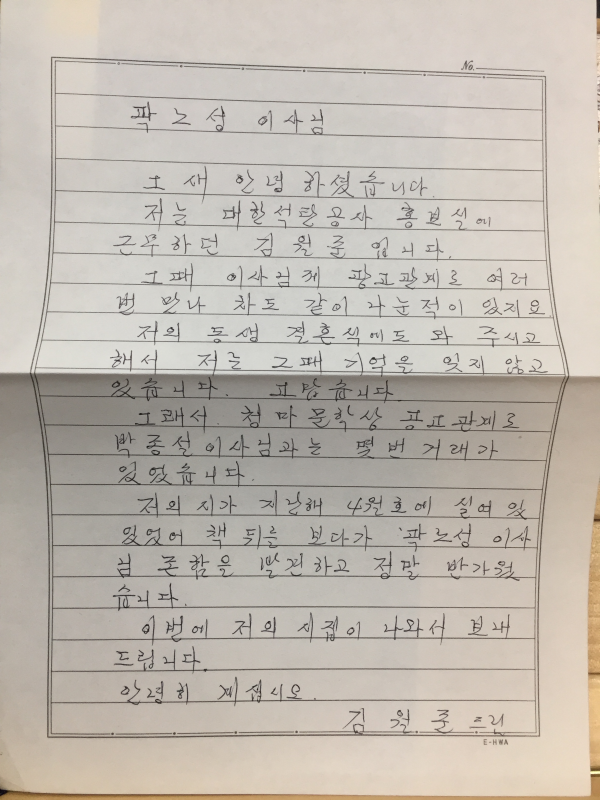 No.
곽노성 이사님
그새 안녕하셨습니다.
저는 대한석탄공사 홍보실에
근무하던 김월준입니다.
그때 이사님께 광고관계로 여러
번 만나 차도 같이 나눈적이 있지요
저의 동생 결혼식에도 와 주시고
해서 저는 그때 기억을 잊지 않고
있습니다. 고맙습니다.
그래서 청마문학상 공고관계로
박종설이사님과는 몇번 거래가
있었습니다.
저의 시가 지난해 4월호에 실여있
있었어 책 뒤를 보다가 곽노성 이사
님 존함을 발견하고 정말 반가웠
습니다.
이번에 저의 시집이 나와서 보내
드립니다.
안녕히 계십시오.
김월준 드린
E-HWA